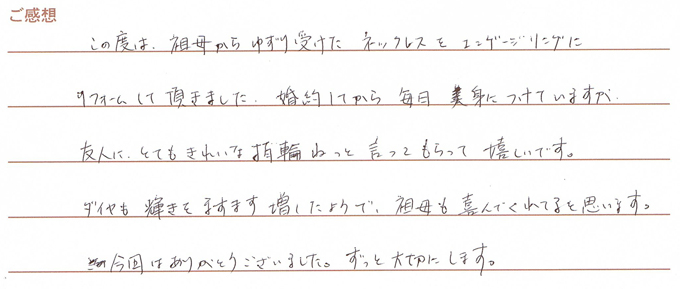 ご感想
この度は、祖母からゆずり受けた ネックレスを エンゲージリングに
リフォームして頂きました。婚約してから 毎日 身につけていますが、
友人に、とてもきれいな指輪ねっと 言ってもらって 嬉しいです。
ダイヤも 輝きをますます 増したようで、祖母も喜んでくれてると思います。
今回はありがとうございました。ずっと大切にします。